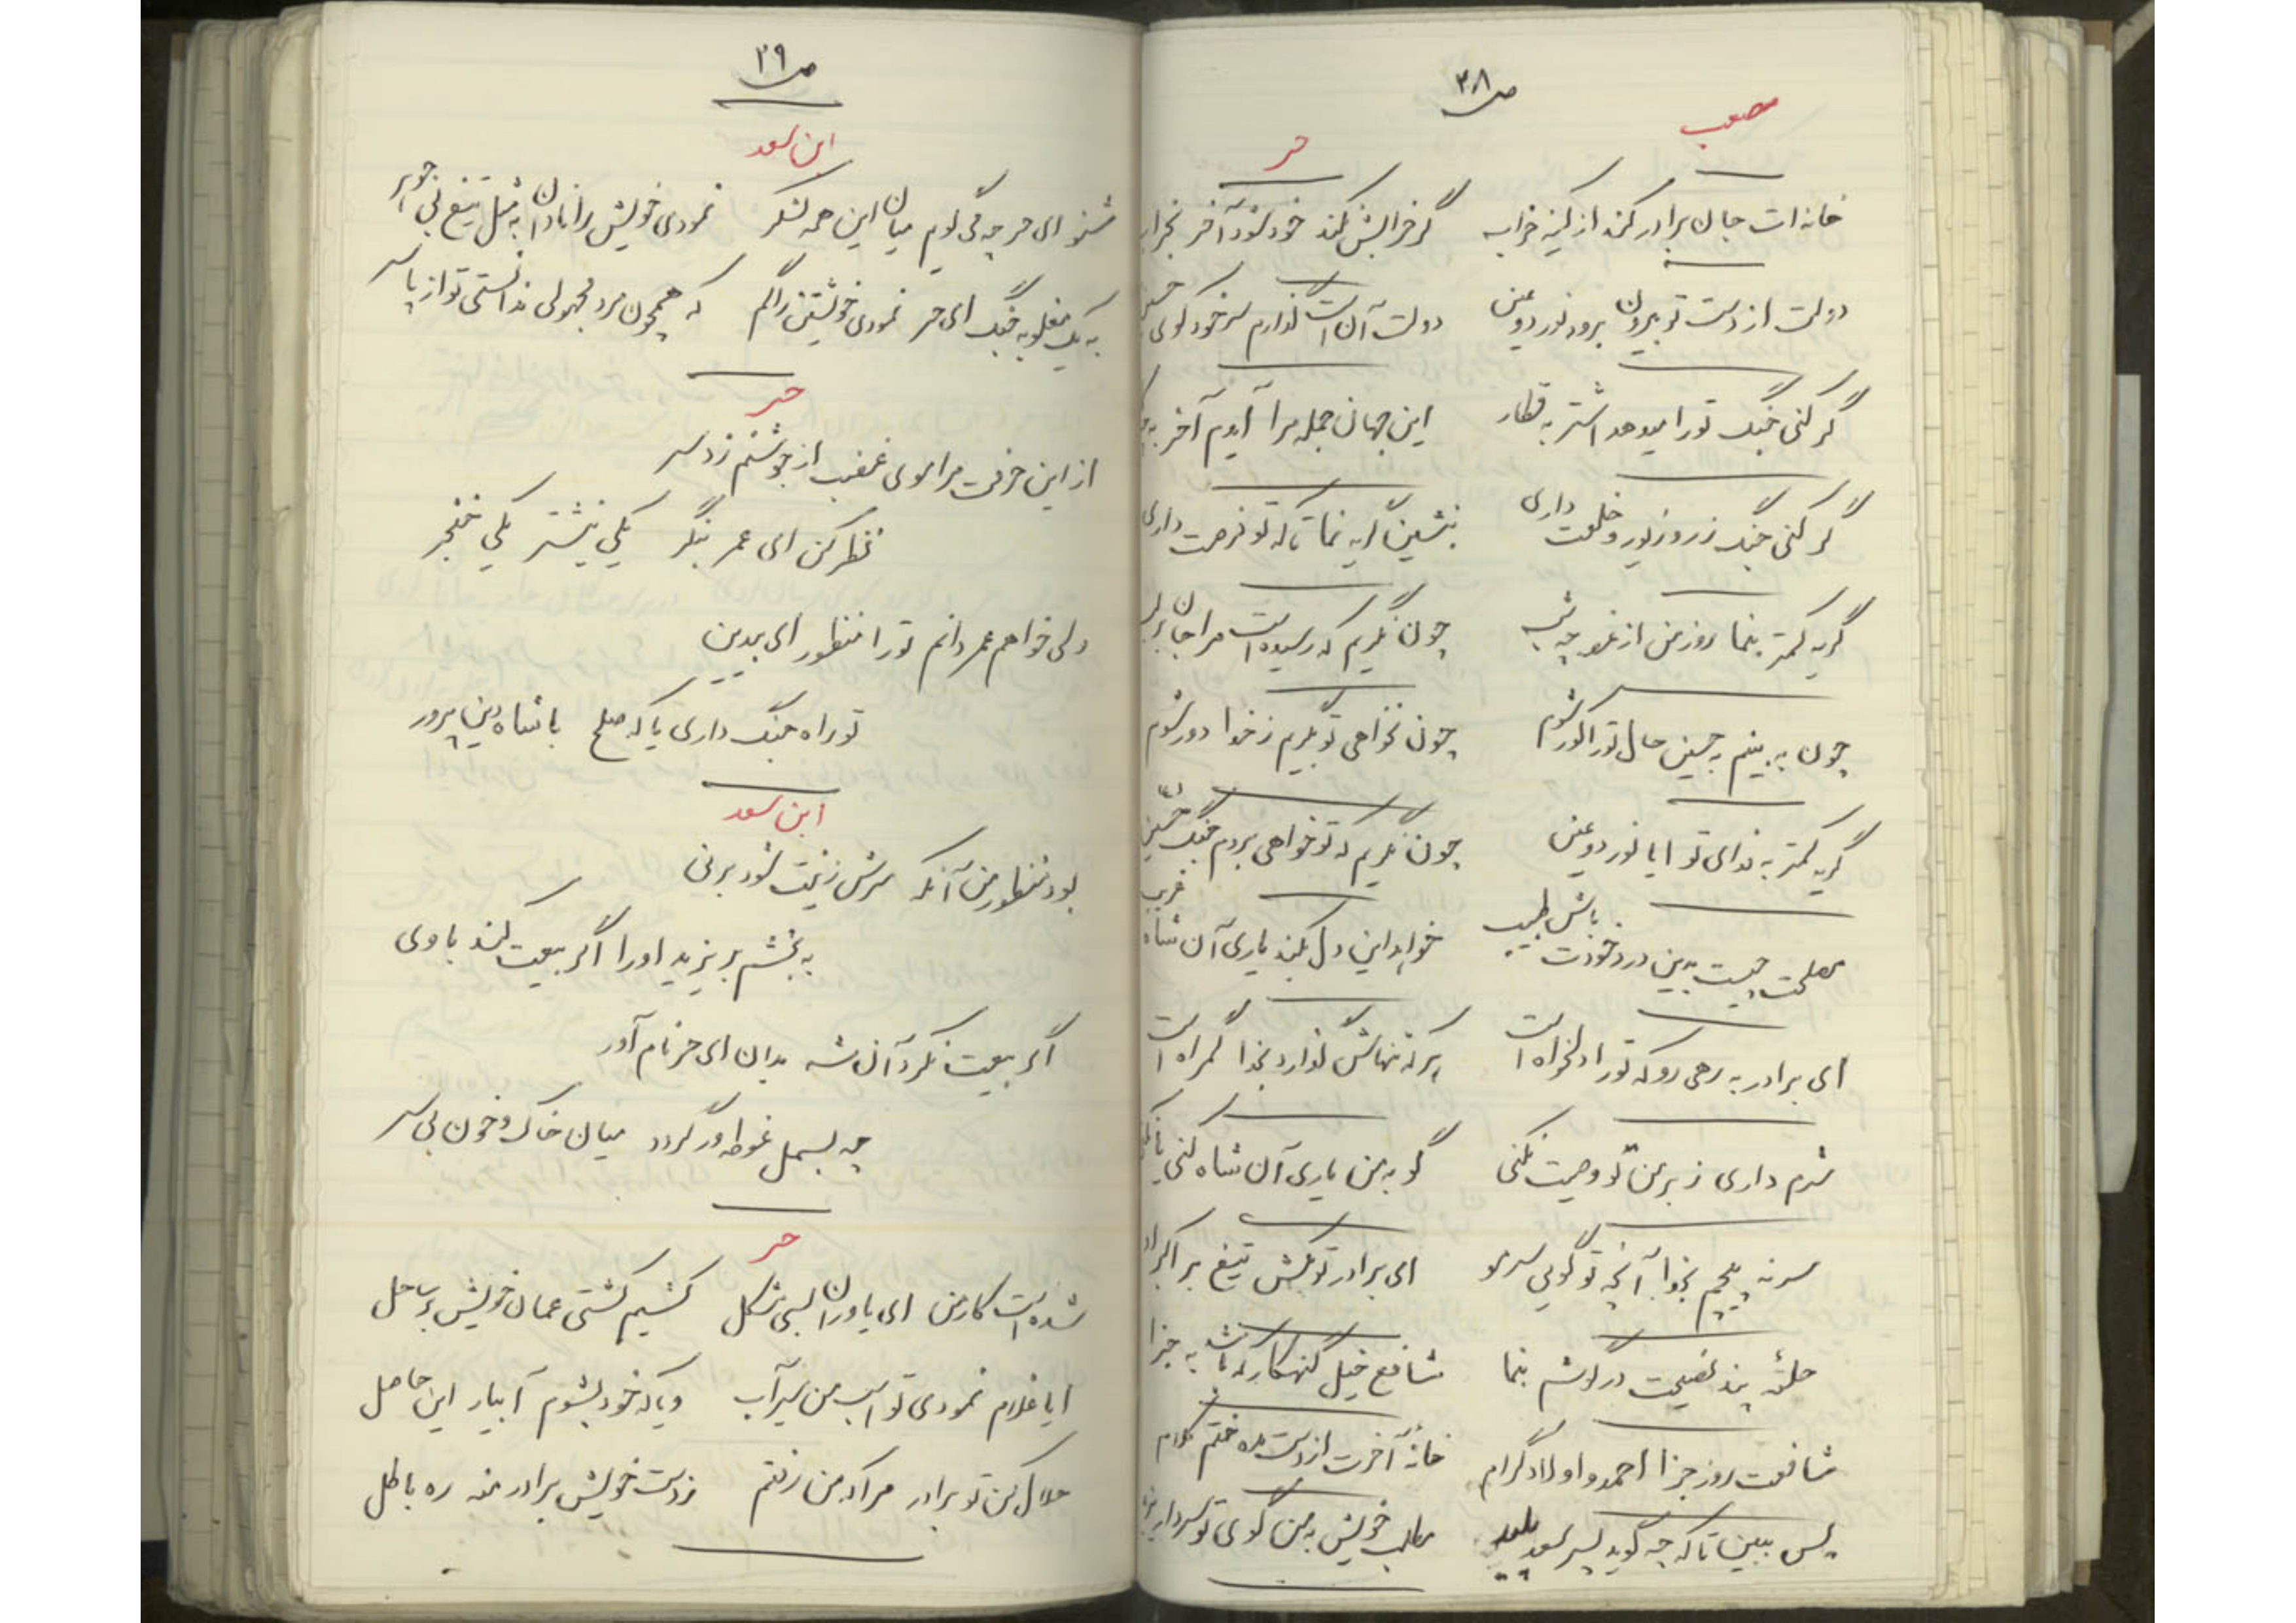 ص ۳۸
مصعب
حر
خانه ات جان برادر کند از کینه خرابه گر خرابش نکند خود شود آخر بخرابه
دولت از دست تو بیرون برود نور دو عین دولت آن است گذارم سر خود کوی حسین
گر کنی جنگ تو را میدهد اشتر به قطار این جهان جمله مرا آید آخر به
گر کنی جنگ زر و زیور و خلعت داری بنشین گریه نما تا که تو فرصت داری
گریه کمتر بنما روز من از غم چه شب چون نگریم که رسیده است مرا جان بر لب
چون به بینم به چنین حال تو را کور شوم چون نخواهی تو بگریم ز خدا دور شوم
گریه کمتر به فدای تو ایا نور دو عین چون نگریم که تو خواهی بروم جنگ حسین
مصلحت چیست به این درد خودت باش طبیب خواهد این دل بکند یاری آن شاه غریب
ای برادر به رهی رو که تو را دلخواه است هر که تنهاش گذارد بخدا گمراه است
شرم داری ز بر من تو وصیت نکنی گو به من یاری آن شاه کنی یا نکنی
سر نه پیچم بخدا آنچه تو گویی سر مو ای برادر تو بکش تیغ بر اکبر او
حلقه پند نصیحت در گوشم بنما شافع خیل گنهکار که باشد به جزا
شافعت روز جزا احمد و اولاد گرام خانهٔ آخرت از دست مده ختم کلام
پس ببین تا که چه گوید پسر سعد پلید مطلب خویش به من گوی تو سردار یزید
ص ۳۹
ابن سعد
شنو ای حر چه می گویم میان این همه لشکر نمودی خویش را نادان به مثل تیغ بی جوهر
به یک مغلوبه جنگ ای حر نمودی خویشتن را گم که همچون مرد مجهولی ندانستی تو از پا سر
حر
از این حرفت مرا موی غضب از جوشنم زد سر
نظر کن ای عمر بنگر یکی نیشتر یکی خنجر
ولی خواهم عمر دانم تو را منظور ای بیدین
تو راه جنگ داری یا که صلح با شاه دین پرور
ابن سعد
بود منظور من آنکه سرش زینت شود بر نی
به بخشم بر یزید او را اگر بیعت کند با وی
اگر بیعت نکرد آن شه بدان ای حر نام آور
چه بسمل غوطه ور گردد میان خاک و خون بی سر
حر
شده است کار من ای یاوران بسی مشکل کشیم کشتی عمان خویش بر ساحل
ایا غلام نمودی تو اسب من سیراب و یا که خود بشوم آبیار این حاصل
حلال کن تو برادر مرا که من رفتم ز دست خویش برادر مده ره باطل